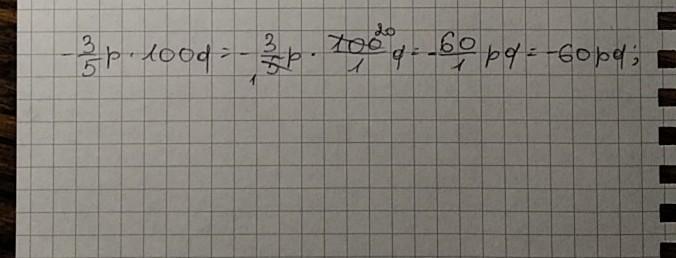 -3/5 p · 100q = - 3/5 1 p · 100 20/1 q = -60/1 pq = -60pq;